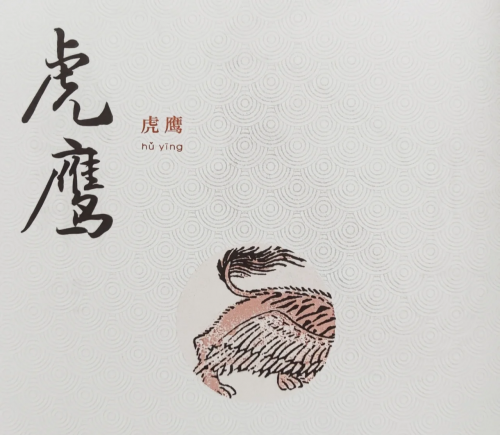 虎鹰
虎鹰
hǔ yīng